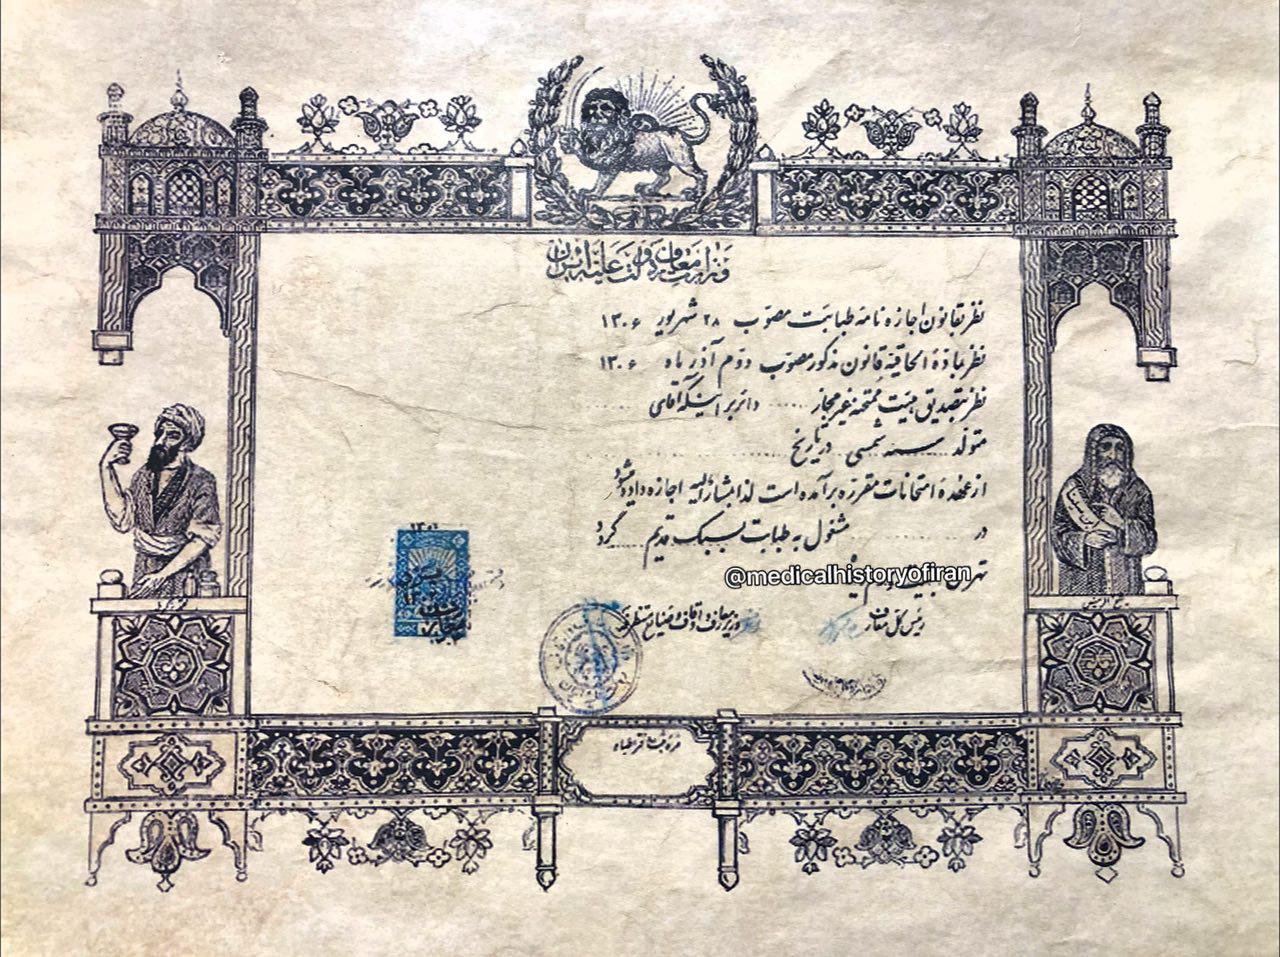 وزارت معارف دولت علیه ایران
نظر بقانون اجازه نامه طبابت مصوّب ۲۸ شهریور ۱۳۰۶
نظر بمادّهٔ الحاقیهٔ قانون مذکور مصوّب دوّم آذر ماه ۱۳۰۶
نظر بتصدیق هیئت ممتحنهٔ غیر مجاز ...... دائر بر اینکه آقای ......
متولد ...... سنه شمسی در تاریخ ......
از عهدهٔ امتحانات مقرّره برآمده است لذا بمشارٌالیه اجازه داده میشود
در ...... مشغول به طبابت بسبک قدیم ...... گردد
@medicalhistoryofiran
تهران بتاریخ
رئیس کل معارف
وزیر معارف و اوقاف و صنایع مستظرفه
نمره ثبت دفتر اطباء